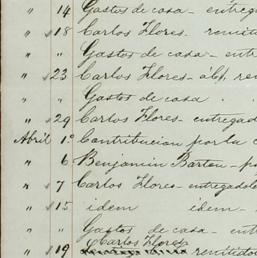 " 14 Gastos de casa - entreg
" 18 Carlos Flores - remiti
" " Gastos de casa - entr
" 23 Carlos Flores - alq. rem
" " Gastos de casa
" 29 Carlos Flores - entregad
Abril 1º Contribucion por la c
" 6 Benjamin Barton - p
" 7 Carlos Flores - entregadole
" 15 idem idem -
" " Gastos de casa - ent
" 19 Carlos Flores remitido